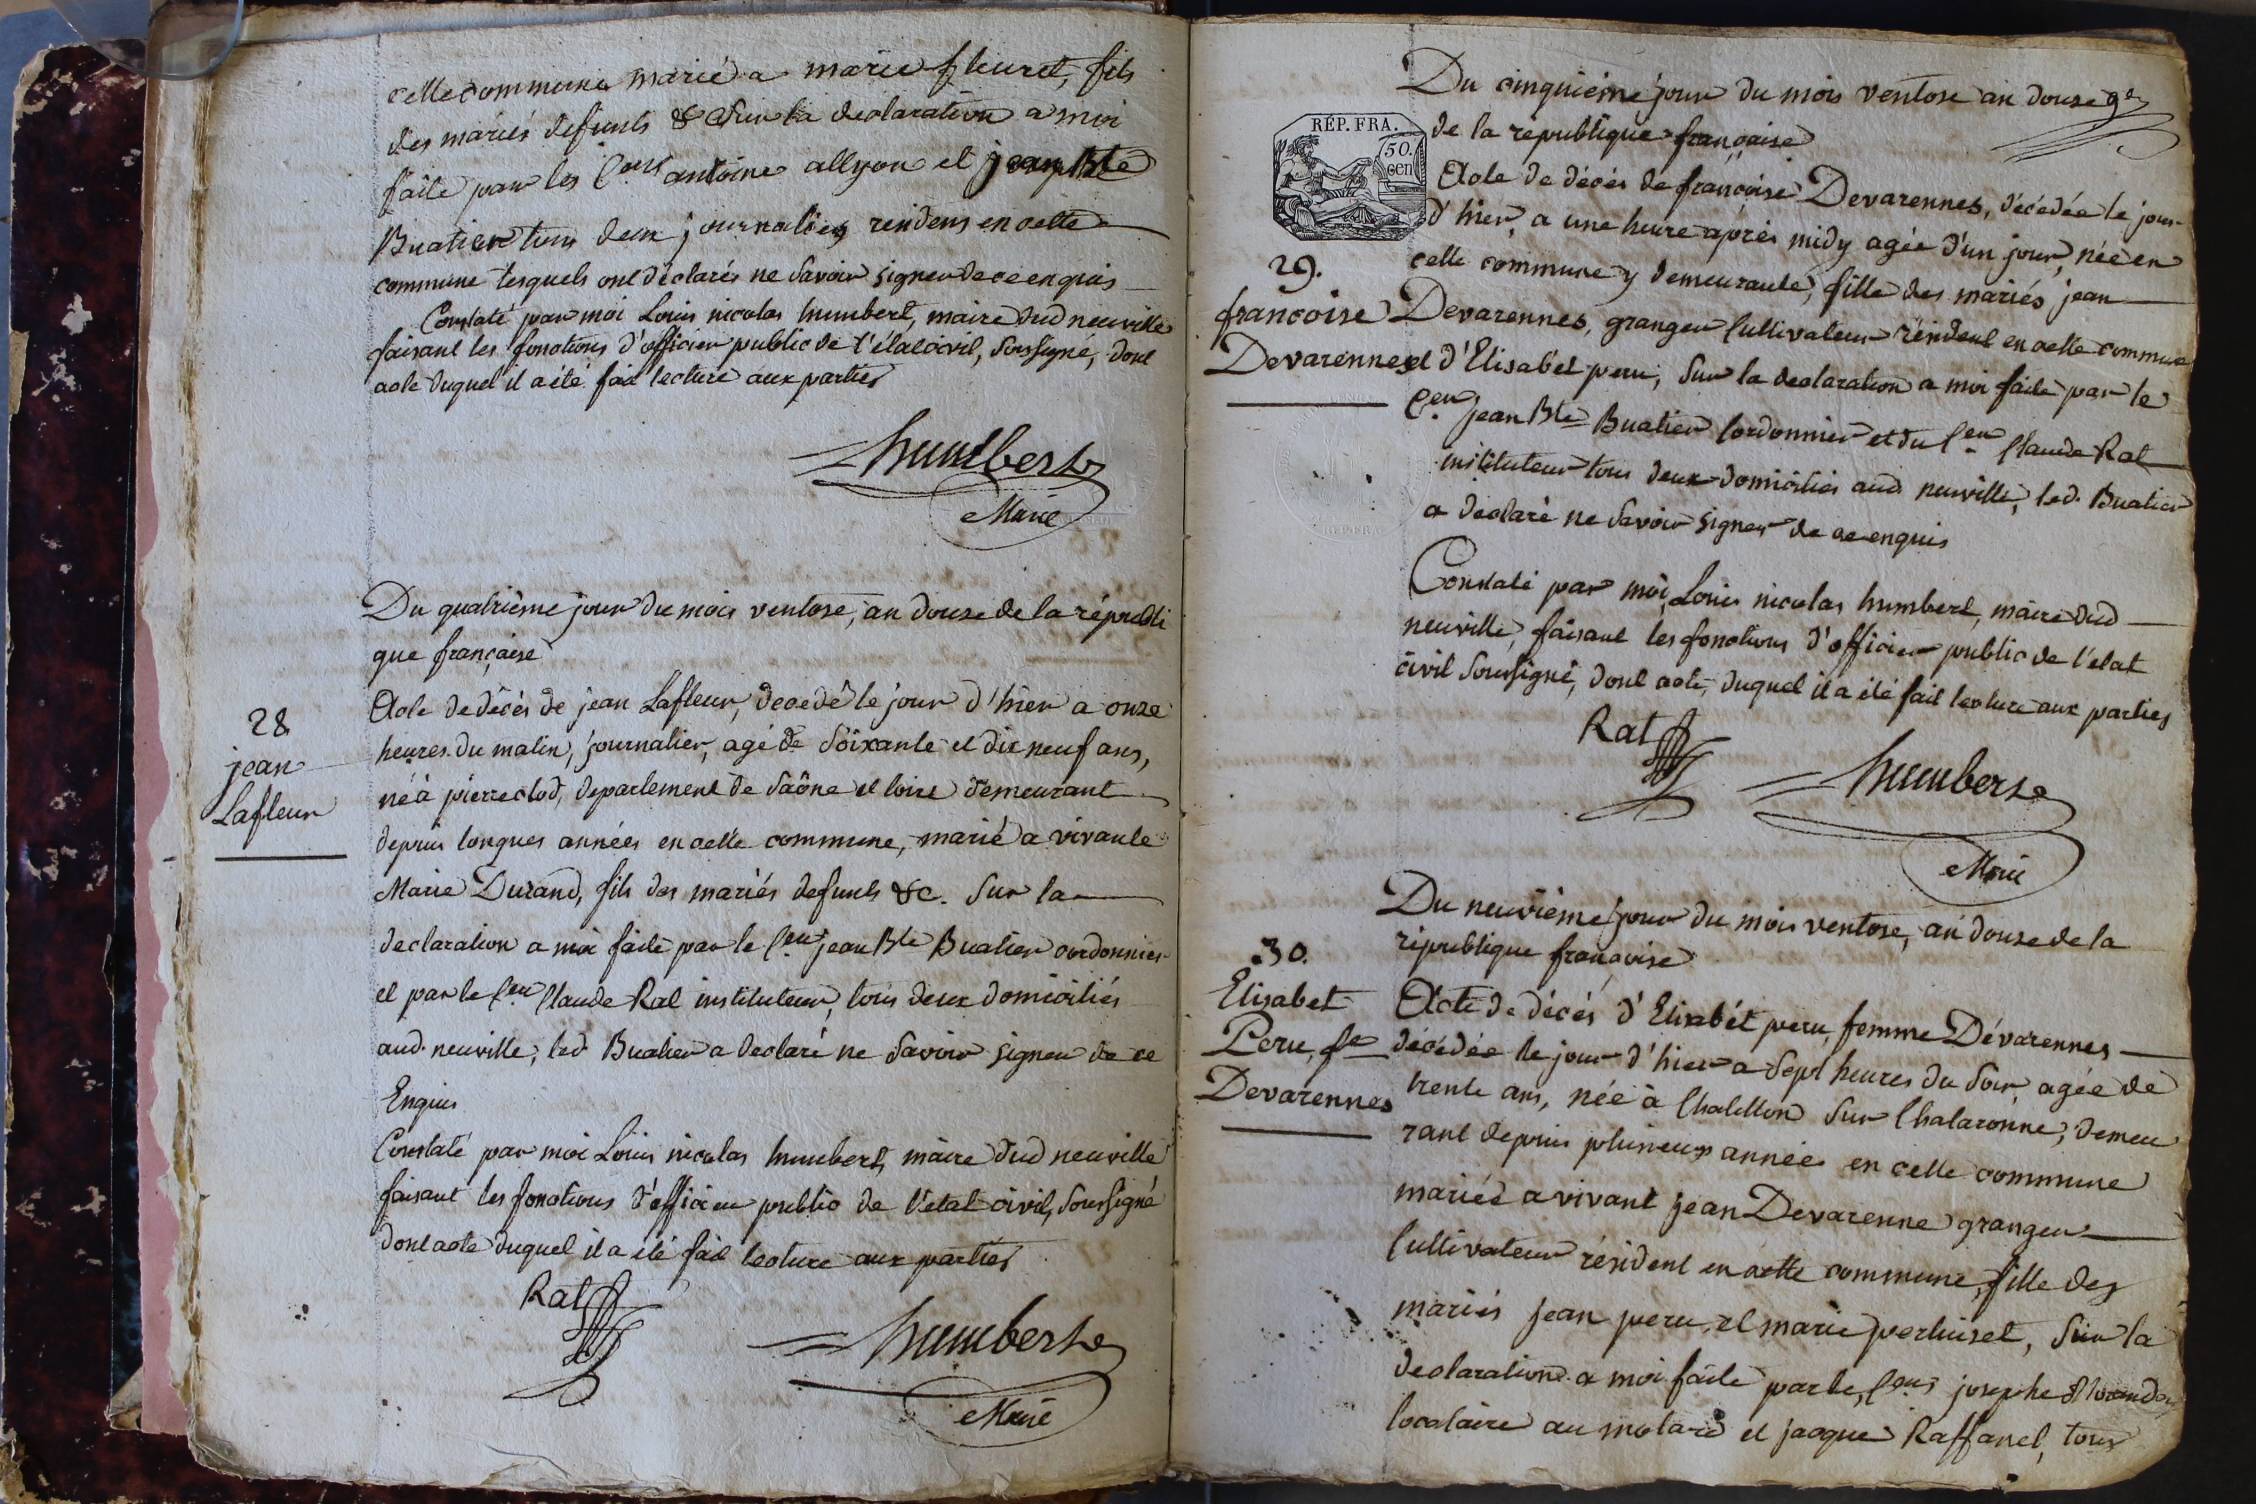 cette commune marié a marie fleuret, fils
des mariés defunts &c sur la declaration a moi
faite par les Cens antoine allyon et jean Bte
Buatier tous deux journaliers residens en cette
commune lesquels ont déclarés ne savoir signer de ce enquis
Constaté par moi Louis nicolas humbert, maire dud neuville
faisant les fonctions d'officier public de l'état civil, soussigné, dont
acte duquel il a été fait lecture aux parties
humbert
Maire
Du quatrième jour du mois ventose, an douze de la républi
que française
28
jean
Lafleur
Acte de décés de jean Lafleur, decedé le jour d'hier a onze
heures du matin, journalier, agé de soixante et dix neuf ans,
né à pierreclod, departement de Saône et loire demeurant
depuis longues années en cette commune, marié a vivante
Marie Durand, fils des mariés defunts &c. sur la
declaration a moi faite par le Cen jean Bte Buatier cordonnier
et par le Cen Claude Rat instituteur, tous deux domiciliés
aud. neuville, led Buatier a declaré ne savoir signer de ce
Enquis
Constaté par moi Louis nicolas humbert, maire dud neuville
faisant les fonctions d'officier public de l'état civil, soussigné
dont acte duquel il a été fait lecture aux parties
Rat
humbert
Maire
Du cinquième jour du mois ventose an douze
de la republique française
RÉP. FRA.
50.
cen
29.
francoise
Devarennes
Acte de décés de françoise Devarennes, décédée le jour
d'hier, a une heure après midy agée d'un jour, née en
cette commune y demeurante, fille des mariés jean
Devarennes, granger Cultivateur résident en cette commune
et d'Elisabét peru, sur la declaration a moi faite par le
Cen jean Bte Buatier Cordonnier et du Cen Claude Rat
instituteur tous deux domiciliés aud. neuville, led. Buatier
a declaré ne savoir signer de ce enquis
Constaté par moi, Louis nicolas humbert, maire dud
neuville, faisant les fonctions d'officier public de l'état
civil soussigné, dont acte, duquel il a été fait lecture aux parties
Rat
humbert
Maire
Du neuvième jour du mois ventose, an douze de la
république françoise
30.
Elisabet
Peru, fe
Devarennes
Acte de décés d'Elisabét peru, femme Dévarennes
décédée le jour d'hier a sept heures du soir, agée de
trente ans, née à Chatillon sur Chalaronne, demeu
rant depuis plusieurs années en cette commune
mariée a vivant jean Devarenne granger
Cultivateur résident en cette commune, fille des
mariés jean peru, et marie perluiset, sur la
declaration a moi faite par le, Cens josephe
locataire au molard et jacque Raffanel, tous